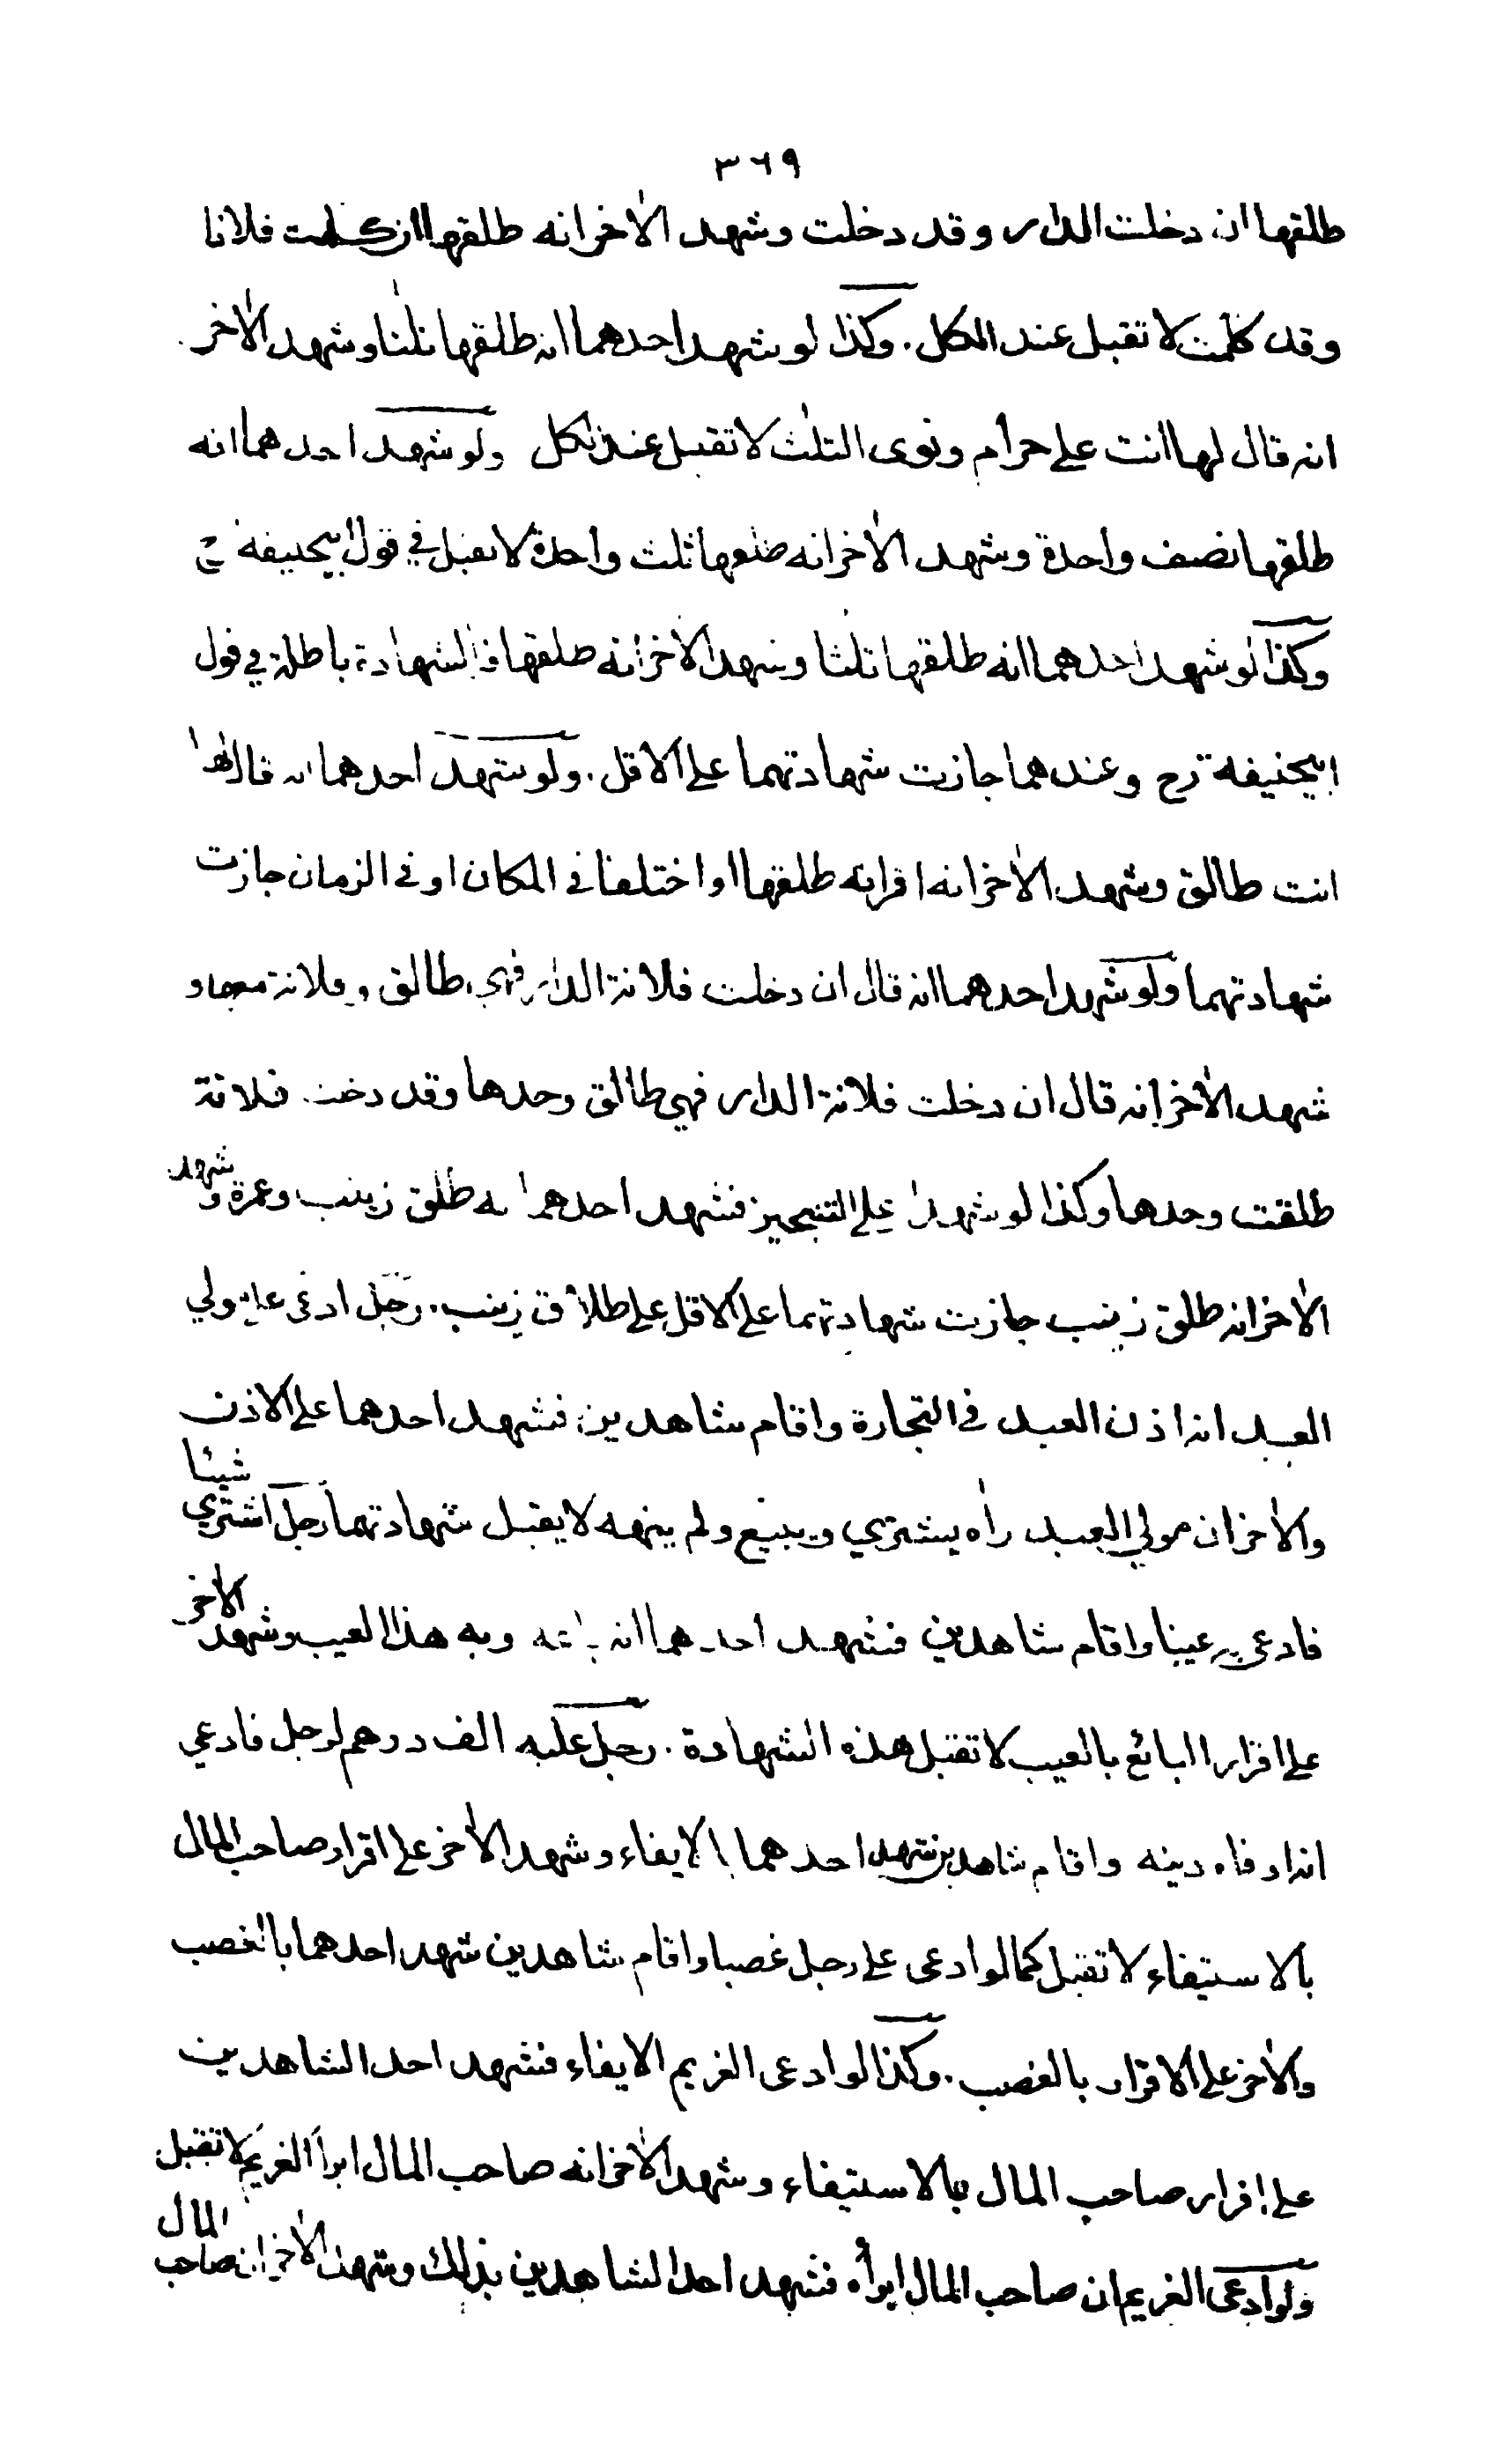 ٣٦٩
طلقها ان دخلت الدار وقد دخلت وشهد الاٰخر انه طلقها ان كلمت فلانا
وقد كلمت لا تقبل عند الكل . وكذا لو شهد احدهما انه طلقها ثلٰثا وشهد الاٰخر
انه قال لها انت على حرام ونوى الثلٰث لا تقبل عند الكل ولو شهد احدهما انه
طلقها نصف واحدة وشهد الاٰخر انه طلقها ثلث واحدة لا تقبل في قول ابيحنيفة رح
وكذا لو شهد احدهما انه طلقها ثلٰثا وشهد الاٰخر انه طلقها فالشهادة باطلة في قول
ابيحنيفة رح وعندهما جازت شهادتهما على الاقل . ولو شهد احدهما انه قال لها
انت طالق وشهد الاٰخر انه اقر انه طلقها او اختلفا في المكان او في الزمان جازت
شهادتهما ولو شهد احدهما انه قال ان دخلت فلانة الدار فهي طالق وفلانة معها و
شهد الاٰخر انه قال ان دخلت فلانة الدار فهي طالق وحدها وقد دخلت فلانة
طلقت وحدها وكذا لو شهدا على التنجيز فشهد احدهما انه طلق زينب وعمرة وشهد
الاٰخر انه طلق زينب جازت شهادتهما على الاقل على طلاق زينب . رجل ادعى على مولي
العبد انه اذن العبد في التجارة واقام شاهدين فشهد احدهما على الاذن
والاٰخر ان مولي العبد راٰه يشتري ويبيع ولم ينهه لا يقبل شهادتهما رجل اشتري شيئا
فادعى به عيبا واقام شاهدين فشهد احدهما انه باعه وبه هذا العيب وشهد الاٰخر
على اقرار البائع بالعيب لا تقبل هذه الشهادة . رجل عليه الف درهم لرجل فادعي
انه اوفاه دينه واقام شاهدين شهد احدهما بالايفاء وشهد الاٰخر على اقرار صاحب المال
بالاستيفاء لا تقبل كما لو ادعى على رجل غصبا واقام شاهدين شهد احدهما بالغصب
والاٰخر على الاقرار بالغصب . وكذا لو ادعى الغريم الايفاء فشهد احد الشاهدين
على اقرار صاحب المال بالاستيفاء وشهد الاٰخر انه صاحب المال ابرأ الغريم لا تقبل
ولو ادعى الغريم ان صاحب المال ابرأه فشهد احد الشاهدين بذلك وشهد الاٰخر ان صاحب المال